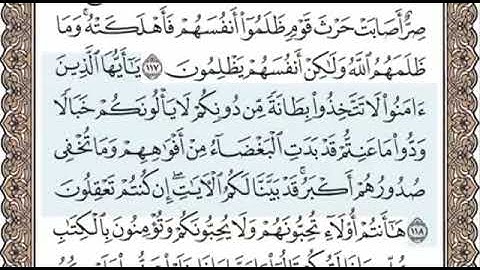 صِرٌّ أَصَابَتْ حَرْثَ قَوْمٍ ظَلَمُوٓا۟ أَنفُسَهُمْ فَأَهْلَكَتْهُ ۚ وَمَا
ظَلَمَهُمُ ٱللَّهُ وَلَٰكِنْ أَنفُسَهُمْ يَظْلِمُونَ ١١٧ يَٰٓأَيُّهَا ٱلَّذِينَ
ءَامَنُوا۟ لَا تَتَّخِذُوا۟ بِطَانَةً مِّن دُونِكُمْ لَا يَأْلُونَكُمْ خَبَالًا
وَدُّوا۟ مَا عَنِتُّمْ قَدْ بَدَتِ ٱلْبَغْضَآءُ مِنْ أَفْوَٰهِهِمْ وَمَا تُخْفِى
صُدُورُهُمْ أَكْبَرُ ۚ قَدْ بَيَّنَّا لَكُمُ ٱلْءَايَٰتِ ۖ إِن كُنتُمْ تَعْقِلُونَ
١١٨ هَٰٓأَنتُمْ أُو۟لَآءِ تُحِبُّونَهُمْ وَلَا يُحِبُّونَكُمْ وَتُؤْمِنُونَ بِٱلْكِتَٰبِ